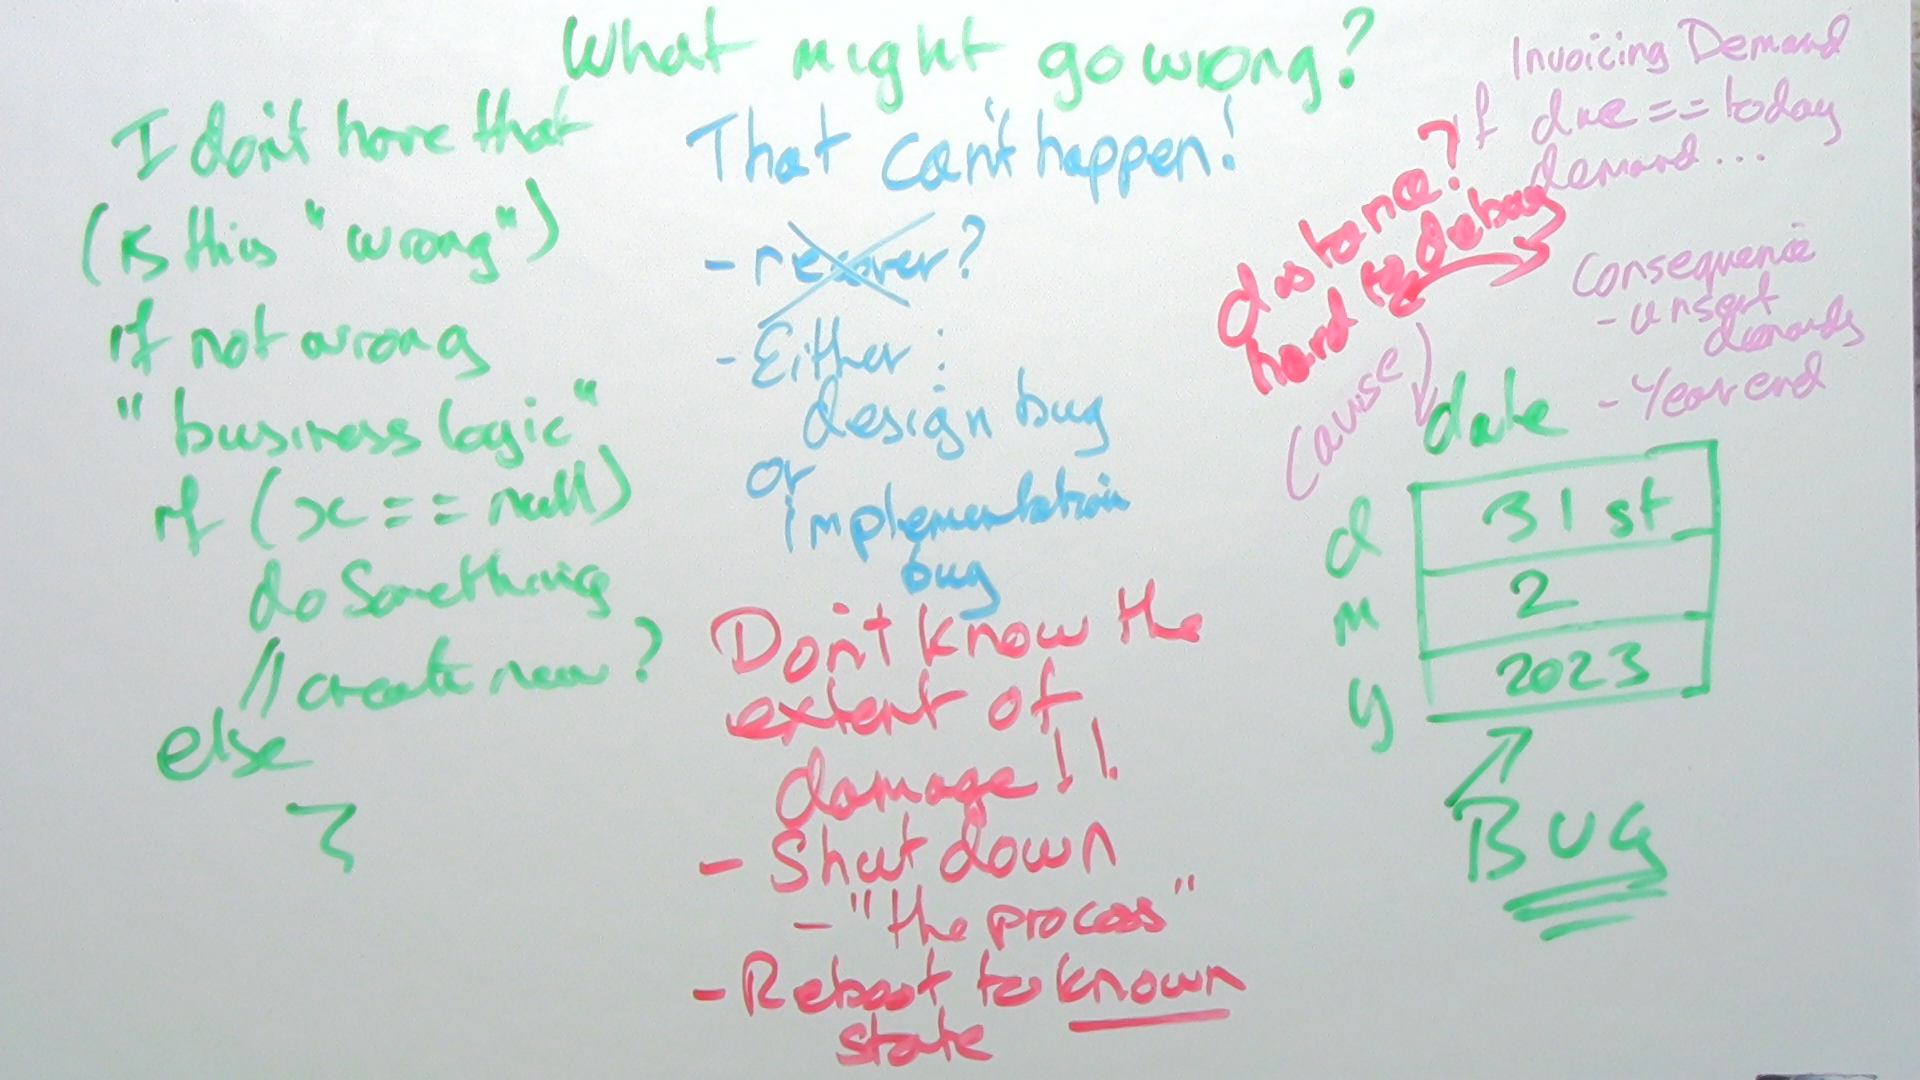 What might go wrong?
I don't have that
(is this "wrong")
if not wrong
"business logic"
if (x == null)
do Something
// create new?
else
That can't happen!
- recover?
- Either :
design bug
or
implementation
bug
Don't know the
extent of
damage!!
- Shut down
- "the process"
- Reboot to known
state
Invoicing Demand
if due == today
demand...
distance?
hard to debug
Consequence
- unsent
demands
- Year end
Cause
date
d 31st
m 2
y 2023
BUG